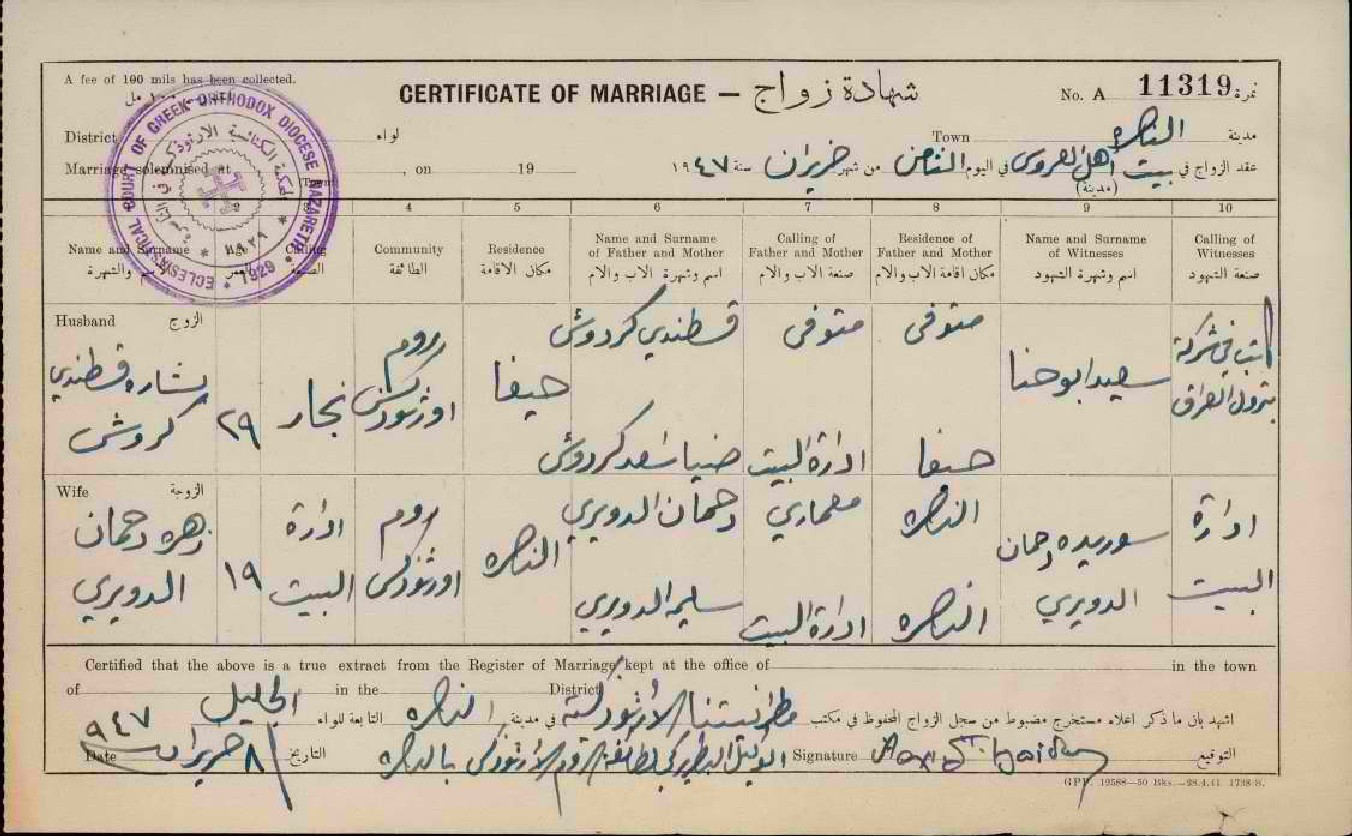 A fee of 100 mils has been collected.
CERTIFICATE OF MARRIAGE — شهادة زواج
No. A 11319 نمرة
District لواء Town الناصره مدينة
Marriage solemnised at , on 19
عقد الزواج في بيت أهل العروس في اليوم الثامن من شهر حزيران سنة ١٩٤٧
(مدينة)
ECCLESIASTICAL COURT OF GREEK ORTHODOX DIOCESE NAZARETH * 1929 *
4 5 6 7 8 9 10
Name and Surname
Calling
Community
الطائفة
Residence
مكان الاقامة
Name and Surname of Father and Mother
اسم وشهرة الاب والام
Calling of Father and Mother
صنعة الاب والام
Residence of Father and Mother
مكان اقامة الاب والام
Name and Surname of Witnesses
اسم وشهرة الشهود
Calling of Witnesses
صنعة الشهود
Husband الزوج
بشاره قسطندي كردوش
٢٩
نجار
روم اورثوذكس
حيفا
قسطندي كردوش
متوفى
متوفى
سعيد ابو حنا
كاتب في شركة بترول العراق
اسعد كردوش
ادارة البيت
حيفا
Wife الزوجة
زهره دحمان الدويري
١٩
ادارة البيت
روم اورثوذكس
الناصره
دحمان الدويري
معماري
الناصره
دحمان الدويري
ادارة البيت
سليمه الدويري
ادارة البيت
الناصره
Certified that the above is a true extract from the Register of Marriage kept at the office of in the town
of in the District
اشهد بان ما ذكر اعلاه مستخرج مضبوط من سجل الزواج المحفوظ في مكتب مطرانيتنا الارثوذكسية في مدينة الناصره التابعة للواء الجليل
Date ٨ حزيران ٩٤٧ التاريخ
الوكيل البطريركي لطائفة الروم الارثوذكس بالناصره
Signature التوقيع
G.P.P. 19588—50 Bks.—28.4.41